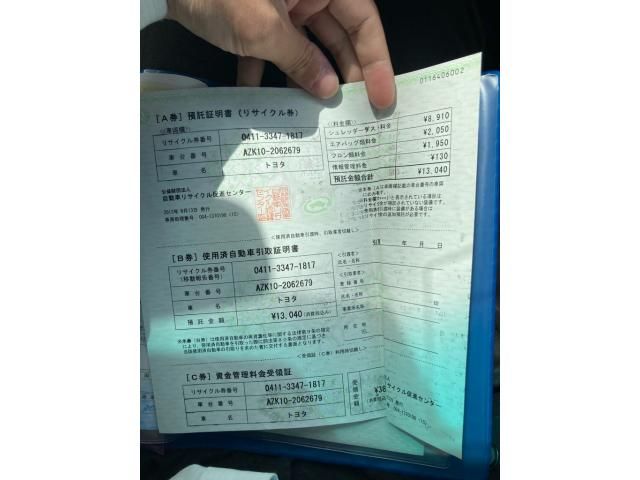 0116406002
[A券] 預託証明書 (リサイクル券)
リサイクル券番号 0411-3347-1817
車台番号 AZK10-2062679
車名 トヨタ
<料金欄>
シュレッダーダスト料金 ¥8,910
エアバッグ類料金 ¥2,050
フロン類料金 ¥1,950
情報管理料金 ¥130
預託金額合計 ¥13,040
公益財団法人
自動車リサイクル促進センター
[B券] 使用済自動車引取証明書
リサイクル券番号
(移動報告番号)
0411-3347-1817
車台番号 AZK10-2062679
車名 トヨタ
預託金額 ¥13,040 (消費税込み)
引取 年 月 日
<引取者>
登録番号
氏名・名称
事業所名称
所在地
TEL
[C券] 資金管理料金受領証
リサイクル券番号 0411-3347-1817
車台番号 AZK10-2062679
車名 トヨタ
受領金額
¥38
リサイクル促進センター